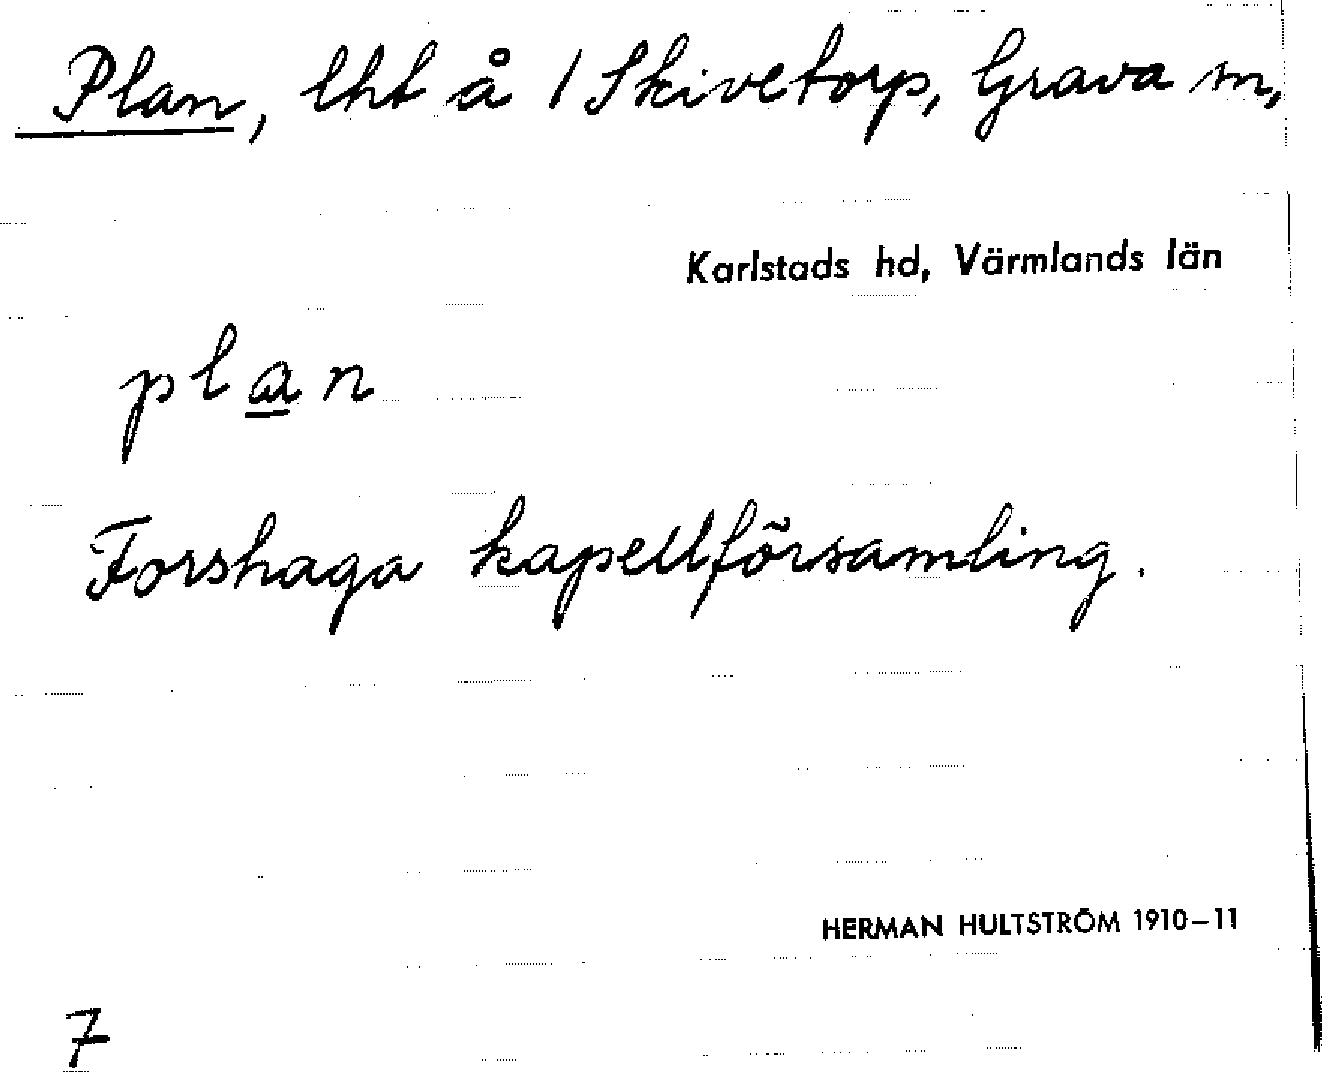 Plan, lht å 1 Skivetorp, Grava sn,
Karlstads hd, Värmlands län
plan
Forshaga kapellförsamling.
HERMAN HULTSTRÖM 1910–11
7